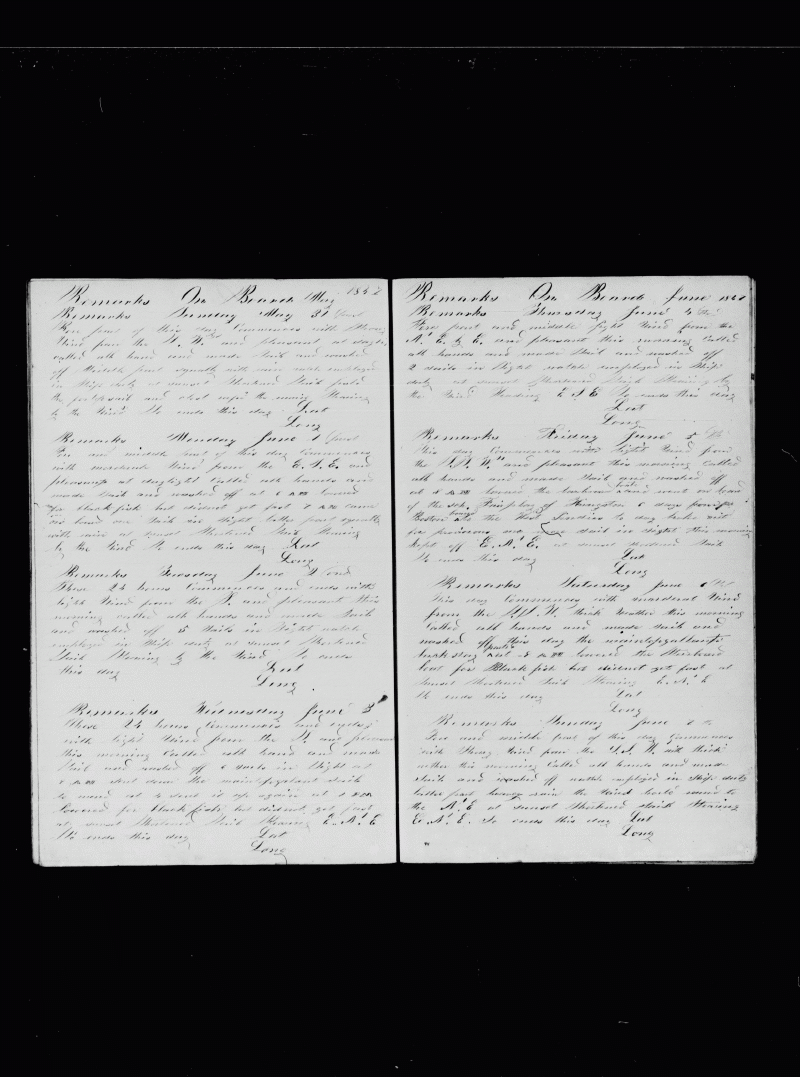 Remarks On Board May 1852
Remarks Sunday May 31
Fore part of this day Commences with Strong
Wind from the S. W. and pleasant at daylight
called all hand and made Sail and washed
off Middle part squally with rain watch employed
in Ships duty at sunset Shortend Sail
the foretopsail and
by the Wind So ends this day Lat
Long
Remarks Monday June 1
Fore and middle part of this day Commences
with moderate Wind from the E. S. E. and
pleasant at daylight Called all hands and
made Sail and washed off at 6 AM lowerd
for black fish but did not get fast 7 AM came
on board one Sail in Sight latter part squally
with rain at sunset Shortend Sail Stearing
by the Wind So ends this day Lat
Long
Remarks Tuesday June 2
These 24 hours Commences and ends with
light Wind from the S. and pleasant this
morning called all hands and made Sail
and washed off 5 Sails in Sight watch
employed in Ship duty at sunset Shortend
Sail Stearing by the Wind So ends
this day Lat
Long
Remarks Wednesday June 3
These 24 hours Commences and ends
with light Wind from the S. and pleasant
this morning Called all hand and made
Sail and washed off 6 Sails in Sight at
AM sent down the maintopgalant Sail
to mend at 4 sent it up again at 5 PM
lowered for black fish but did not get fast
at sunset Shortened Sail Stearing E. N. E
So ends this day Lat
Long
Remarks On Board June
Remarks Thursday June 4
Fore part and middle light Wind from the
N. E. by E. and pleasant this morning Called
all hands and made Sail and washed off
2 Sails in Sight watch employed in Ship
duty at sunset Shortened Sail Stearing by
the Wind Heading E S E So ends this day
Lat
Long
Remarks Friday June 5
this day Commences with light Wind from
the W. and pleasant this morning Called
all hands and made Sail and washed off
at 8 AM lowerd the larboard boat and went on board
of the Sch. Fairplay of Kingston 6 days from
Boston to day
Sail in Sight this morning
kept off E. N. E. at sunset Shortened Sail
So ends this day Lat
Long
Remarks Saturday June 6
this day Commences with moderat Wind
from the S. W. thick wether this morning
Called all hands and made Sail and
washed off this day the maintopgallant
at 5 PM lowered the Starbord
boat for Black fish but did not get fast at
sunset Shortened Sail Stearing E. N. E
So ends this day Lat
Long
Remarks Sunday June
Fore and middle part of this day Commences
with Strong Wind from the S. W. with thick
wether this morning Called all hands and made
Sail and washed off watch employed in Ship duty
latter part heavy rain the Wind to
the N. E at sunset Shortened Sail Stearing
E. N. E. So ends this day Lat
Long